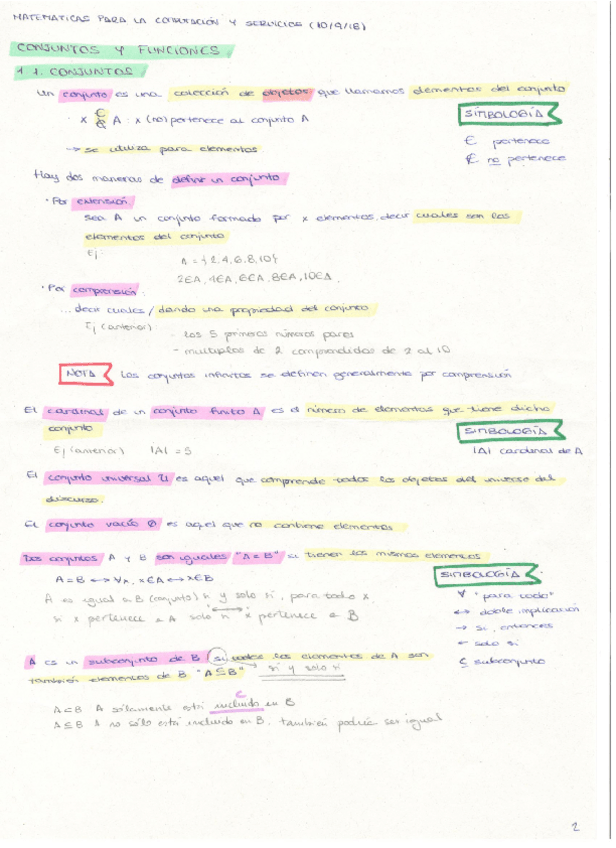 MATEMÁTICAS PARA LA COMPUTACIÓN Y SERVICIOS (10/9/18)
CONJUNTOS Y FUNCIONES
1.1. CONJUNTOS
Un conjunto es una colección de objetos que llamamos elementos del conjunto
· x ∈ ∉ A : x (no) pertenece al conjunto A
SIMBOLOGÍA
→ se utiliza para elementos
∈ pertenece
∉ no pertenece
Hay dos maneras de definir un conjunto
· Por extensión
sea A un conjunto formado por x elementos, decir cuales son los
elementos del conjunto
Ej
A = {2,4,6,8,10}
2∈A, 4∈A, 6∈A, 8∈A, 10∈A.
· Por comprensión:
...decir cuales / dando una propiedad del conjunto
Ej (anterior) - Los 5 primeros números pares
- multiplos de 2 comprendidos de 2 al 10
NOTA Los conjuntos infinitos se definen generalmente por comprensión
El cardinal de un conjunto finito A es el número de elementos que tiene dicho
conjunto
SIMBOLOGÍA
Ej (anterior) |A| = 5
|A| cardinal de A
El conjunto universal U es aquel que comprende todos los objetos del universo del
discurso.
El conjunto vacío ∅ es aquel que no contiene elementos
Dos conjuntos A y B son iguales "A = B" si tienen los mismos elementos
SIMBOLOGÍA
A = B ↔ ∀x, x∈A ↔ x∈B
∀ "para todo"
A es igual a B (conjunto) si y solo si, para todo x,
↔ doble implicación
si x pertenece a A solo si x pertenece a B
→ si, entonces
← solo si
⊆ subconjunto
A es un subconjunto de B / si todos los elementos de A son
también elementos de B "A⊆B" si y solo si
⊂
A⊂B A sólamente está incluido en B
A⊆B A no sólo está incluido en B, también podría ser igual
2